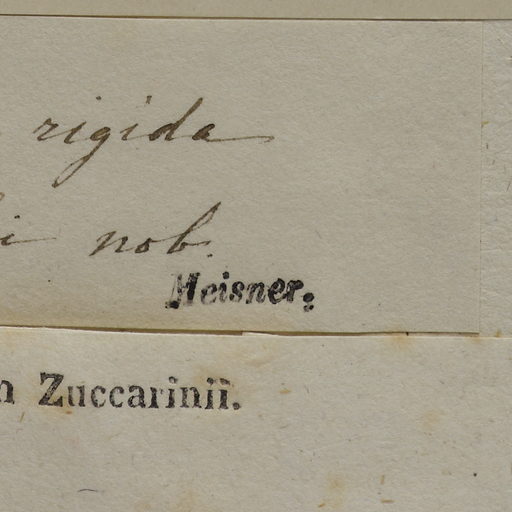 rigida
i nob.
Meisner.
n Zuccarinii.